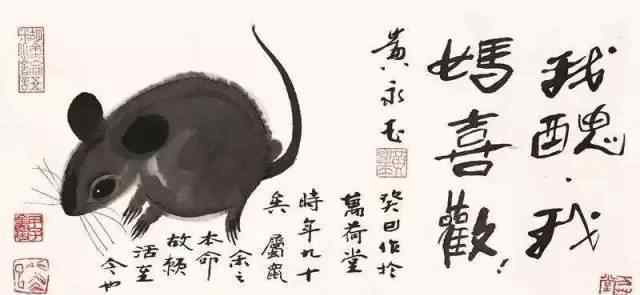 我醜.我
媽喜歡!
黄永玉
癸巳作於
萬荷堂
時年九十
矣 屬鼠
余之
本命
故頼
活至
今也